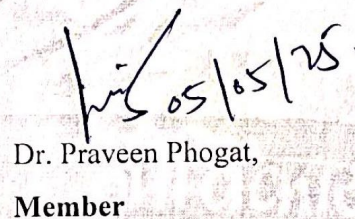 05/05/25
Dr. Praveen Phogat,
Member